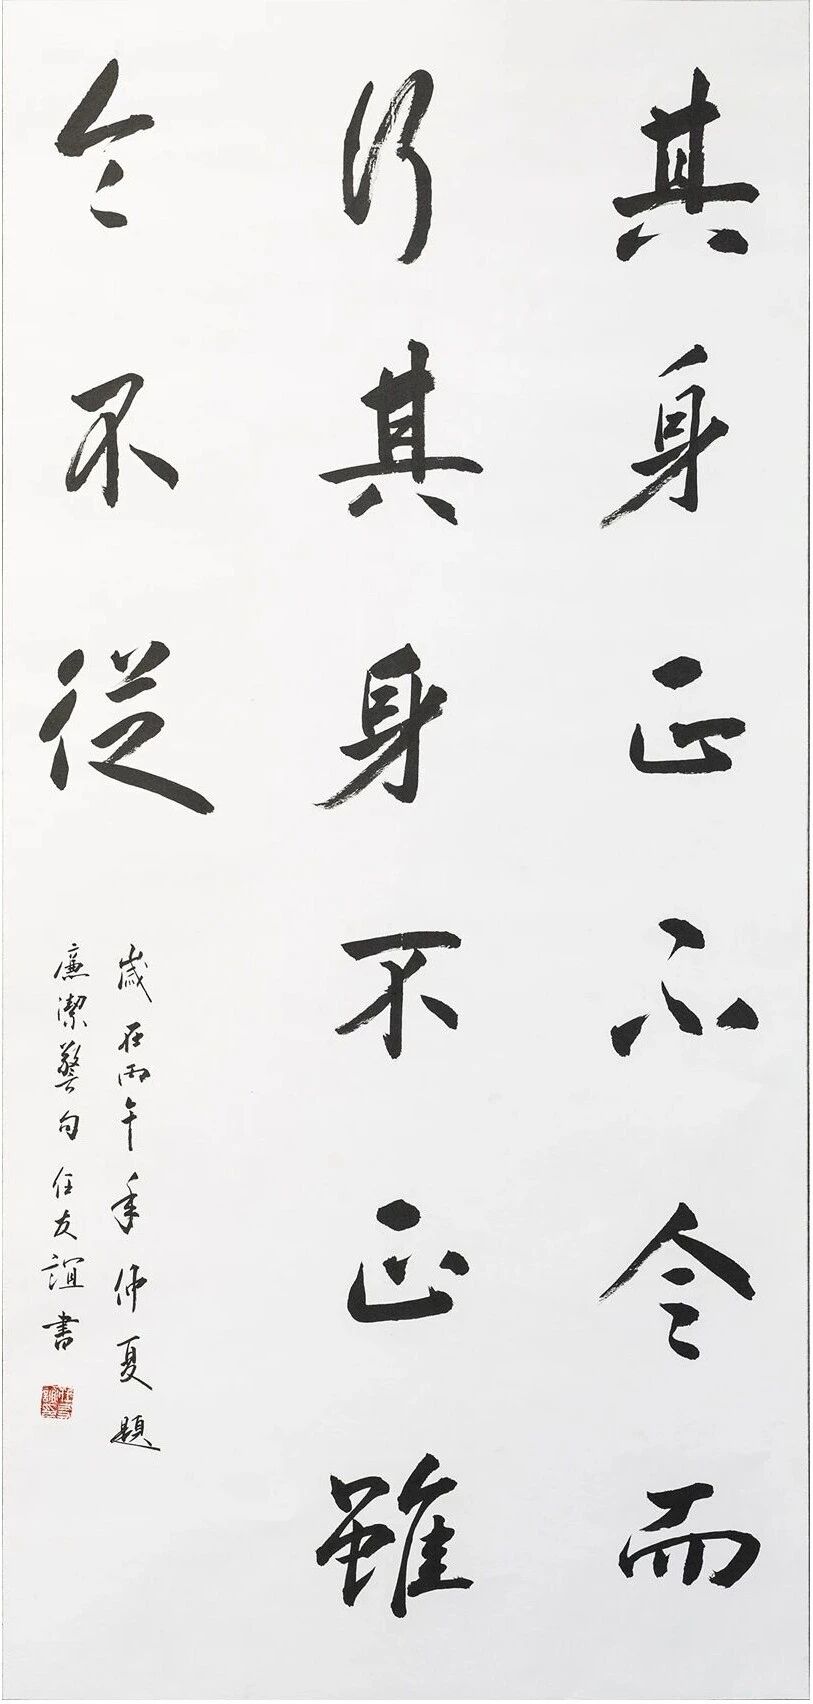 其身正不令而
行其身不正雖
令不從
歲在丙午年仲夏題
廉潔警句任友誼書